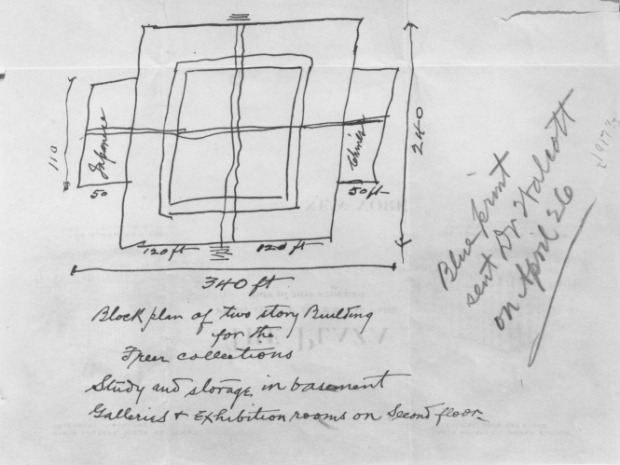 110
Japanese
50
Chinese
50ft
240
120 ft
120 ft
340 ft
Blue print
sent Dr Walcott
on April 26
Block plan of two story Building
for the
Freer collections
Study and storage in basement
Galleries + Exhibition rooms on Second floor